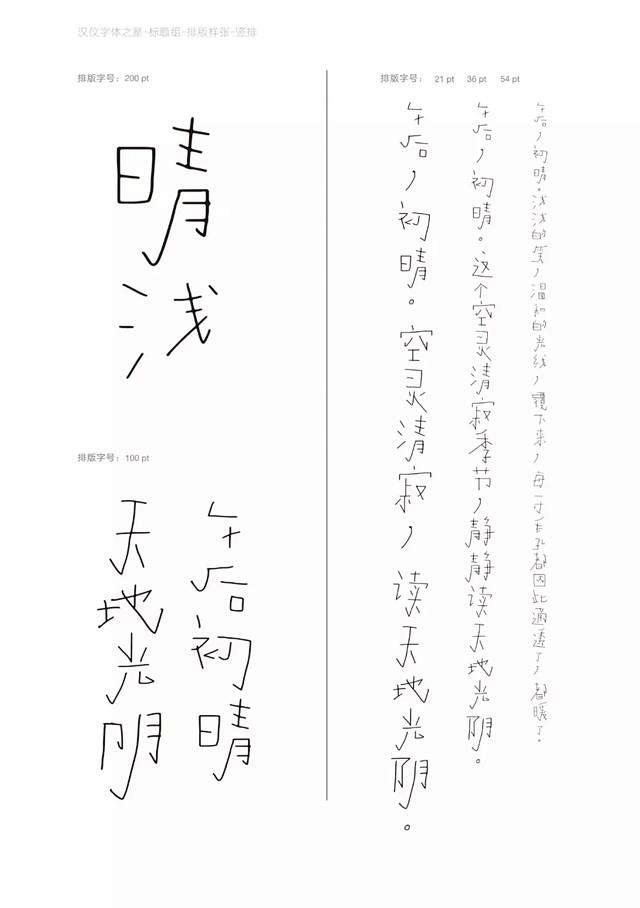 汉仪字体之星-标题组-排版样张-竖排
排版字号：200 pt
晴
浅
排版字号：100 pt
午后初晴
天地光阴
排版字号： 21 pt 36 pt 54 pt
午后，初晴。浅浅的笑，温和的光线，覆下来，每一寸毛孔都因此通透了，都暖了。
午后，初晴。这个空灵清寂季节，静静读天地光阴。
午后，初晴。空灵清寂，读天地光阴。